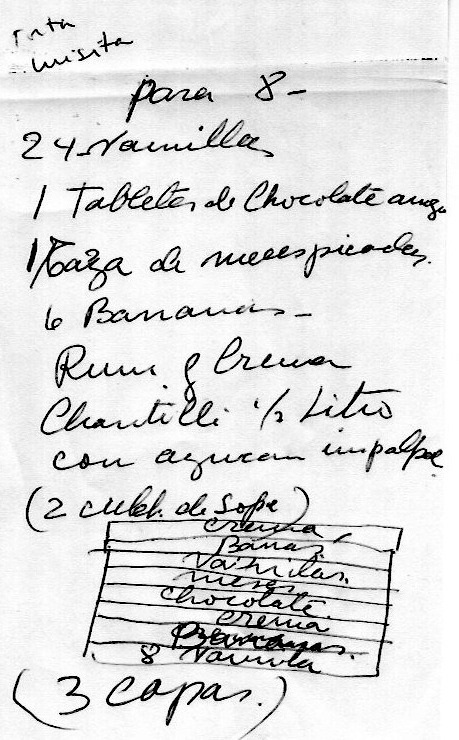 misita
para 8-
24 Vainillas
1 Tabletas de Chocolate amgo
1 Taza de nueces picadas.
6 Bananas-
Rum y Crema
Chantilli 1/2 Litro
con azucar impalpable
(2 cuch. de Sopa)
crema
Banas.
Vainillas.
nueses
chocolate.
crema
Bananas.
8 Vainilla
(3 capas.)